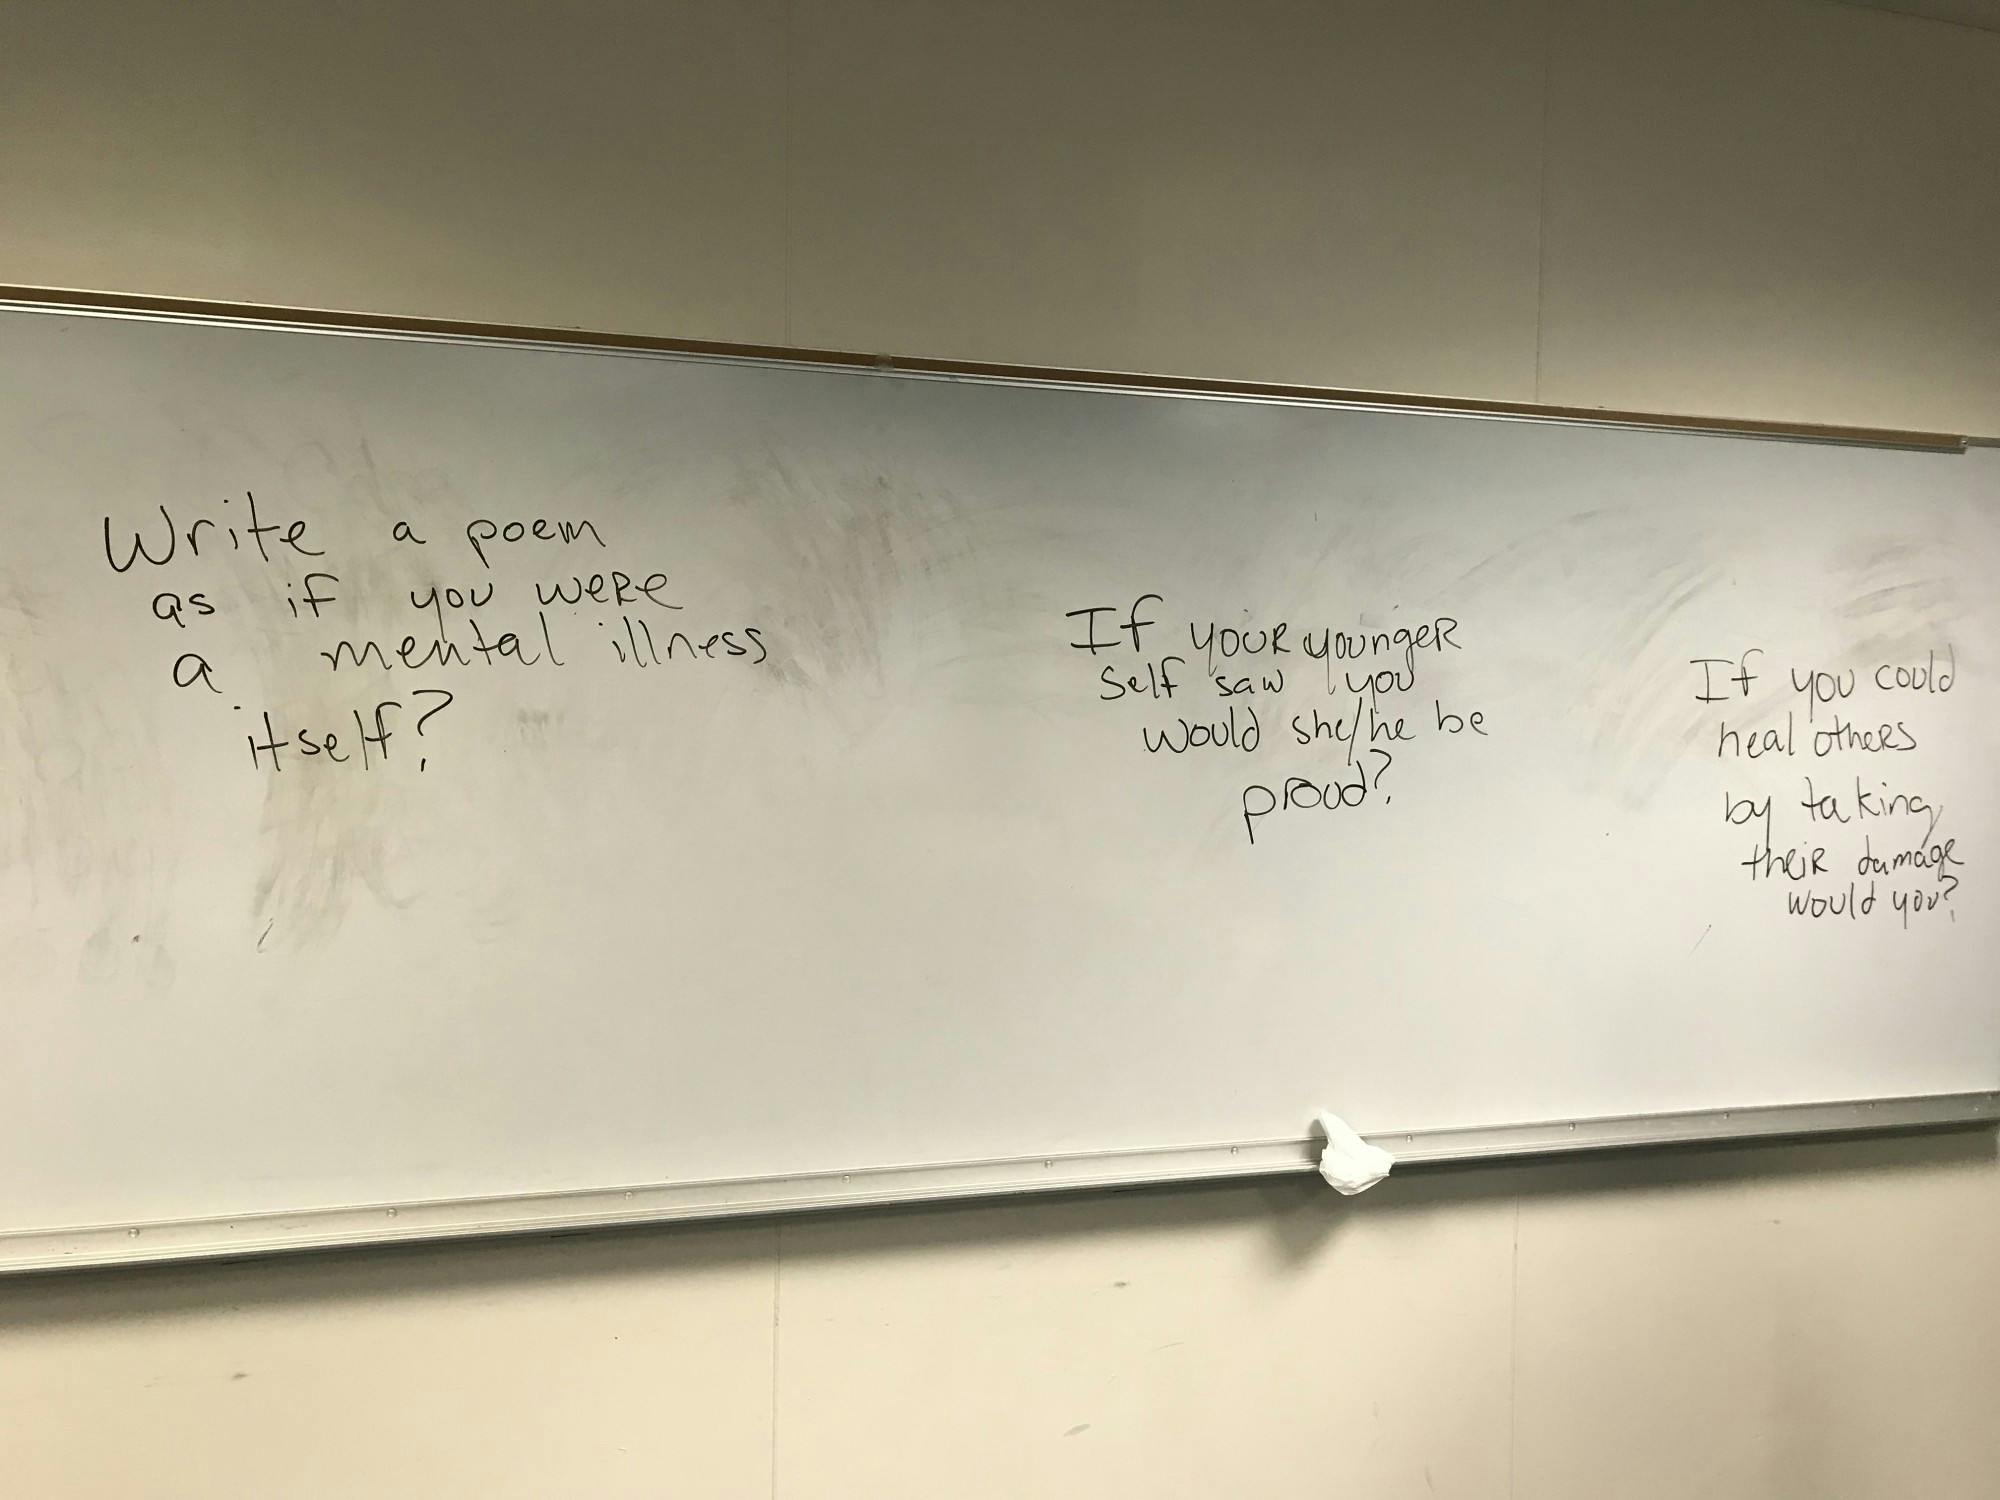 Write a poem
as if you were
a mental illness
itself?
If your younger
self saw you
would she/he be
proud?
If you could
heal others
by taking
their damage
would you?